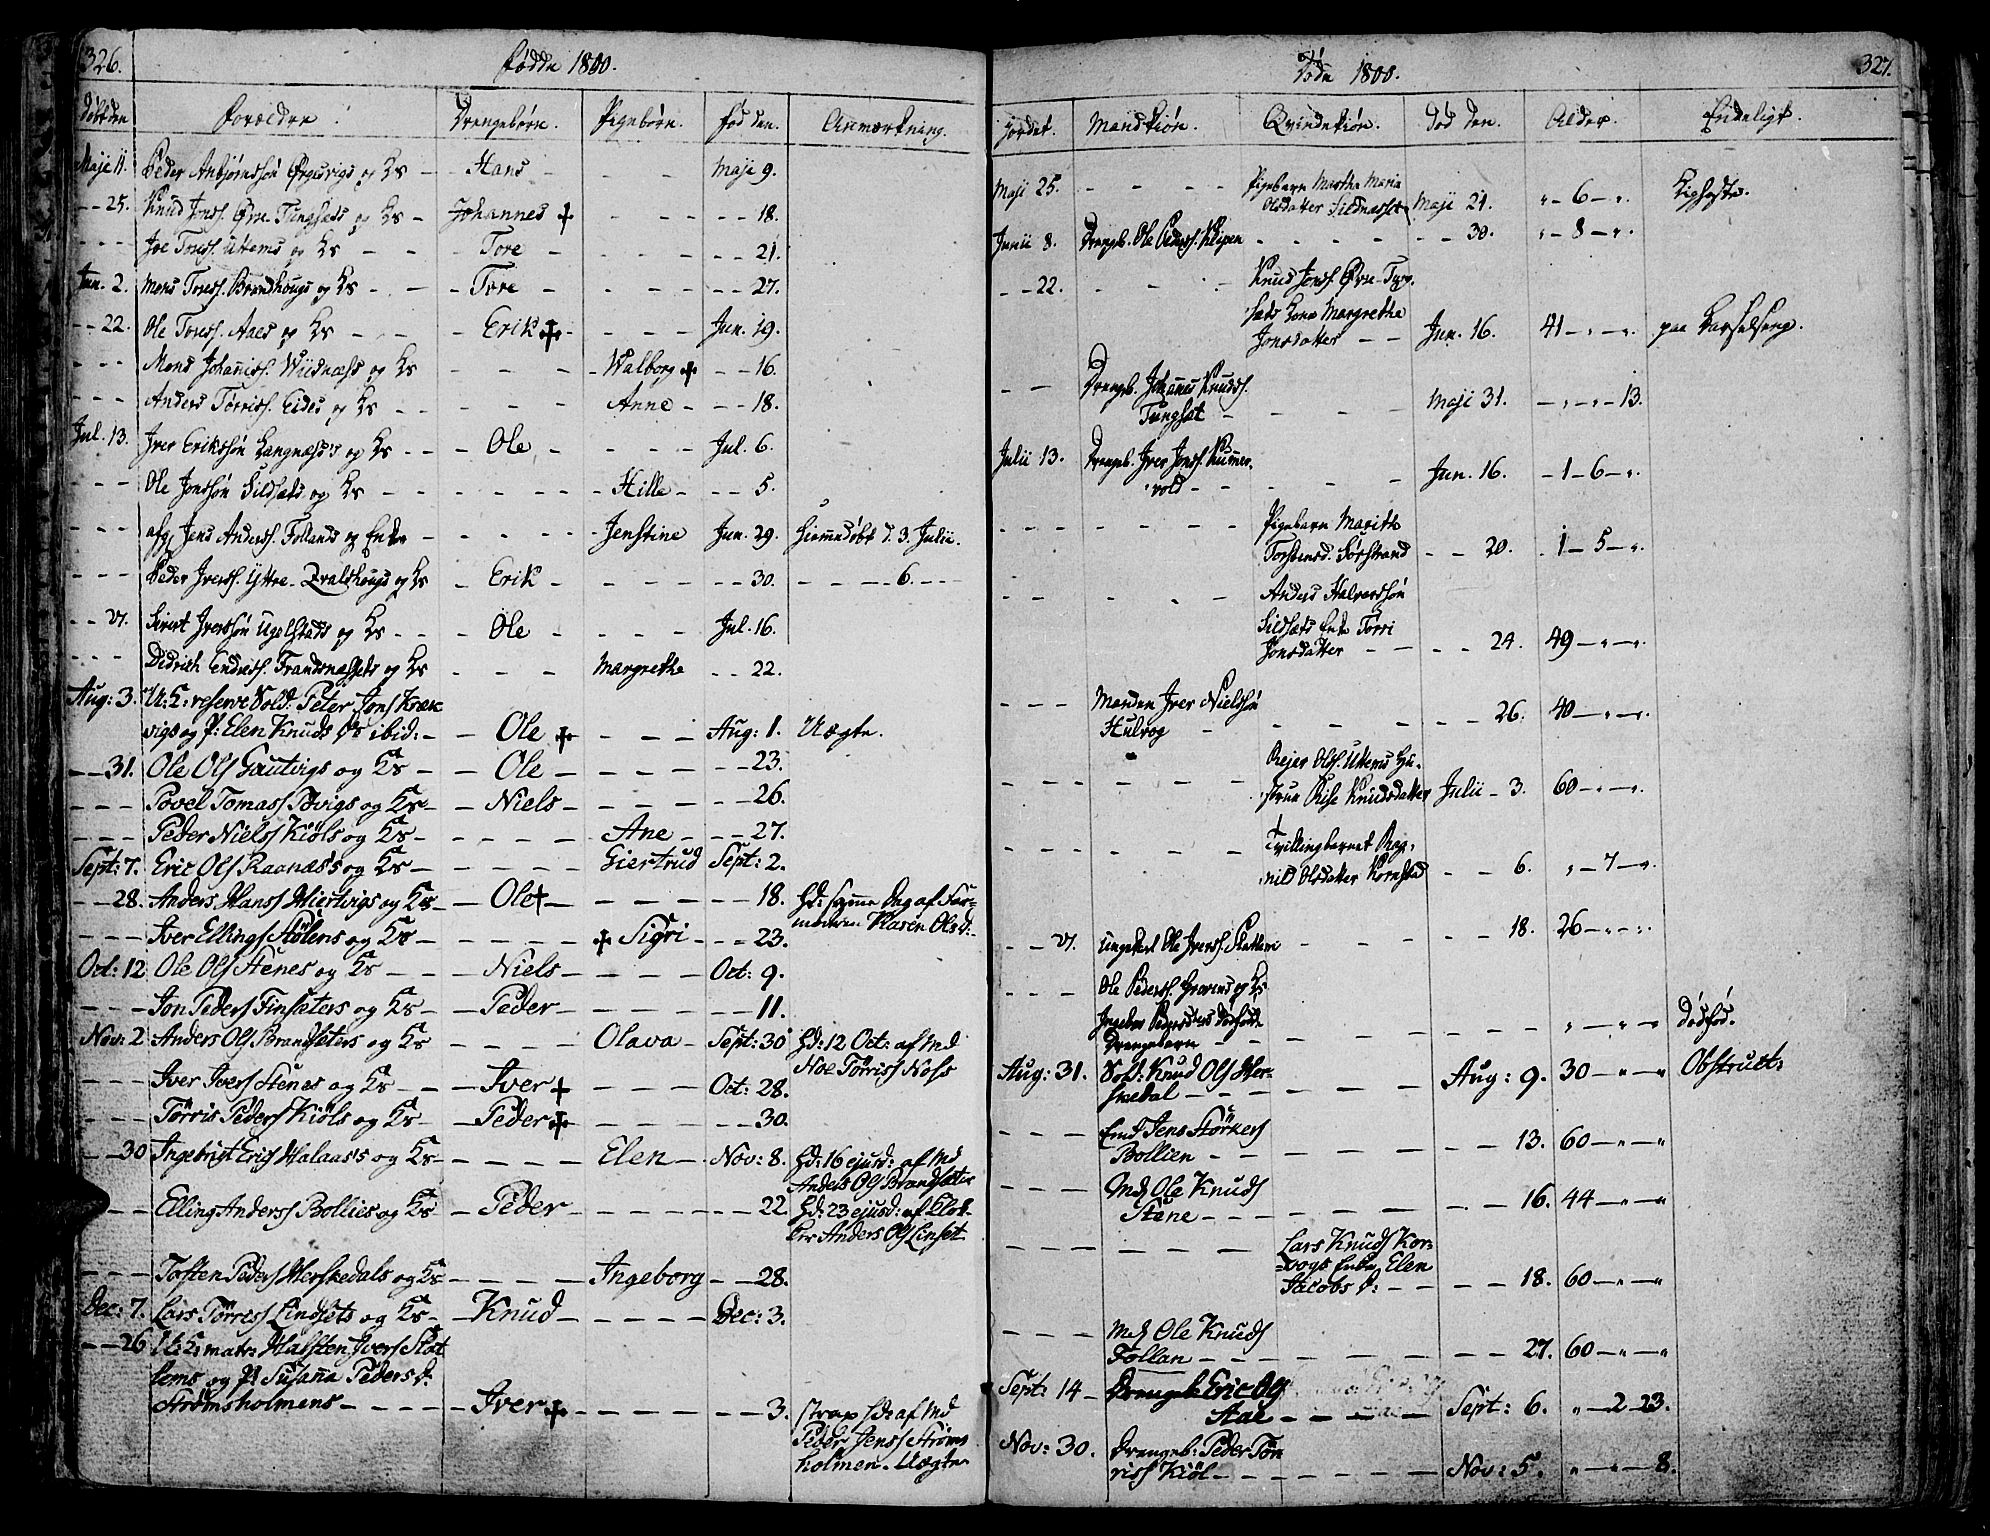 326.
Fødde 1800.
Døbt den Forældre: Drengebørn. Pigebørn. Fød den. Anmærkning.
Maji 11. Peder Anbjørnssøn Ørgsvigs og Hs - Hans - - - Maji 9.
- - 25. Knud Jonss. Øvre-Tungsæts og Hs - Johannes + - - - - - 18.
- - - Joe Toress. Uttems og Hs - - - Tore - - - - - 21.
Jun. 2. Mons Toress. Brandhougs og Hs - - - Tore - - - - - 27.
- - 22. Ole Toress. Aaes og Hs - - - Erik + - - - Jun. 19.
- - - Mons Johaniss. Wiidnæss og Hs - - - Walborg + - - 16.
- - - Anders Tørriss. Eides og Hs - - - Anne - - - 18.
Jul. 13. Iver Erikssøn Langnæss's og Hs - - - Ole - - - - Jul. 6.
- - - Ole Jonssøn Sildsæts og Hs - - - - - Hille - - - 5.
- - - afg. Jens Anderss. Follands og Enke - - - - Jenstine Jun. 29. Hiemmedøbt d. 3. Julii.
- - - Peder Iverss. Yttre-Qvalshougs og Hs - Erik - - - - - - 30. - - - 6. - - -
- - 27. Sivert Iverssøn Ugelstads og Hs - - - Ole - - - - Jul. 16.
- - - Didrich Endress. Trandsnæssets og Hs - - - Margrethe - - 22.
Aug: 3. U: L: reserve Sold: Peter Jons Kræk
vigs og P: Elen Knuds Ds ibid: - - Ole + - - - Aug: 1. Uægte.
- - 31. Ole Ols Gautvigs og Hs - - Ole - - - - - - 23.
- - - Povel Tomass Povigs og Hs - - Niels - - - - - - 26.
- - - Peder Niels Kiøls og Hs - - - - - Ane - - - 27.
Sept: 7. Eric Ols Raanæs's og Hs - - - - - Giertrud Sept: 2.
- - 28. Anders Hanss Miertvigs og Hs - - Ole + - - - - - 18. Hd: samme Dag af Far-
moderen Karen Olsd:
- - - Iver Ellings Stølens og Hs - - - - - + Sigri - - - 23.
Oct: 12 Ole Ols Stenes og Hs - - - Niels - - - - Oct: 9.
- - - Jon Peders Finsæters og Hs - - Peder - - - - - - 11.
Nov: 2 Anders Ols Brandsæters og Hs - - - - Olava - Sept: 30 Hd: 12 Oct: af Md
Noe Tørriss Noss
- - - Iver Ivers Stenes og Hs - - - Iver + - - - Oct: 28.
- - - Tørris Peders Kiøls og Hs - - Peder + - - - - - 30.
- - 30 Ingebrigt Erics Halaas's og Hs - - - - Elen - Nov: 8. Hd: 16 ejusd: af Md
Anders Ols Brandsæter
- - Elling Anderss Bollies og Hs - Peder - - - - - - 22 Hd: 23 ejusd: af Klok-
ker Anders Ols Linset
- - - Tosten Peders Herskedals og Hs - - - - Ingeborg - - 28.
Dec: 7. Lars Tørriss Lindsets og Hs - - Knud - - - - Dec: 3.
- - 26 U: L: matr: Halsten Ivers Slat
lems og P: Susana Pedersd.
Strømsholmens - - - - - Iver + - - - - - 3. strax Hd: af Md
Peder Jenss Strøms
holmen. Uægte
327.
Døde 1800.
Jordet. Mandkiøn. Qvindekiøn. Død den. Alder. Endeligt.
Maji 25. - - - - Pigebarn Marthe Maria
Olsdatter Sildnæsset Maji 21. " - 6 - ". Kighoste.
Junii 8. Drengb. Ole Peders. Klipen - - - - - - 30. " - 8 - ".
- - 22. - - - Knud Jonss. Øvre-Tung-
sæts Kone Margrethe
Jonsdatter - - Jun. 16. 41 - " - ". paa Barselseng.
- - Drengeb. Johanes Knudss.
Tungset - - - - Maji 31. - " - " - 13.
Julii 13. Drengb. Iver Jonss. Kummer-
vold - - - - Jun. 16. - 1 - 6 - ".
- - - - - - Pigebarn Marith
Torstensd. Sørstrand - - 20. . 1 - 5 - ".
- - - - Anders Halvorssøn
Sildsæts Enke Tørri
Jonsdatter - - - - 24. 49 - " - ".
- - - Manden Iver Nielssøn
Hulvog - - - - - - 26. 40 - " - ".
- - - - - - Rejer Olss. Uttems Hu-
strue Rise Knudsdatter Julii - 3. 60 - " - ".
- - - - - Tvillingbarnet Rag-
nild Olsdatter Kornstad - - 6. " - 7 - ".
- - 27. Ungekarl Ole Iverss. Slatlem - - - - 18. 26 - " - ".
- - - Ole Pederss. Gravens og Hs
Ingebor Pedersdatters dødfødt
Drengebarn - - - - - - - " - " - " Dødfød.
Aug: 31. Sold: Knud Ols Her-
skedal - - - - - - Aug: 9. 30 - " - " Obstruct:
- - - Enk: Jens Størkers
Bollien - - - - - - 13. 60 - " - "
- - - Md Ole Knuds
Stene - - - - - - 16. 44 - " - "
- - - - - - Lars Knuds Kor-
vogs Enke Elen
Jacobs D: - - - - 18. 60 - " - "
- - - Md Ole Knuds
Follan - - - - - - 27. 60 - " - "
Sept: 14 - Drengeb. Eric Ols
Aae - - - - Sept: 6. " - 2 - 23.
Nov: 30. Drengeb: Peder Tør
riss Kiøl - - - - - Nov: 5. " - " - 8.